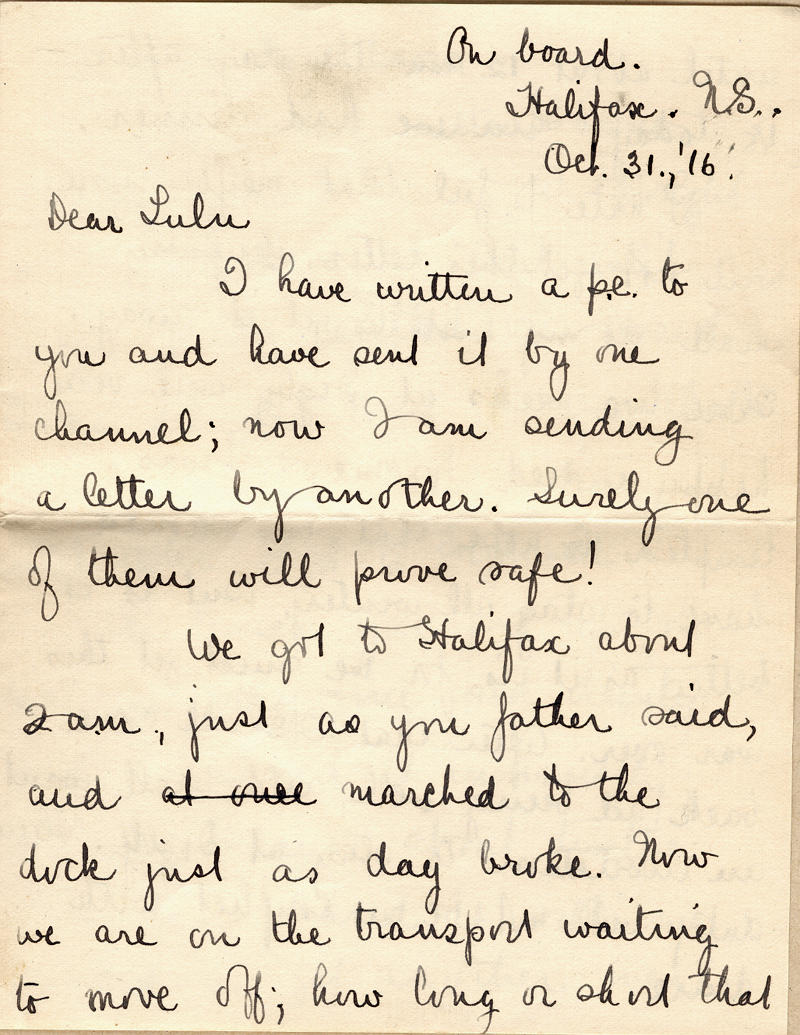 On board.
Halifax. N.S..
Oct. 31.,'16.
Dear Lulu
I have written a p.c. to
you and have sent it by one
channel; now I am sending
a letter by another. Surely one
of them will prove safe!
We got to Halifax about
2 a.m., just as you father said,
and at once marched to the
dock just as day broke. Now
we are on the transport waiting
to move off; how long or short that